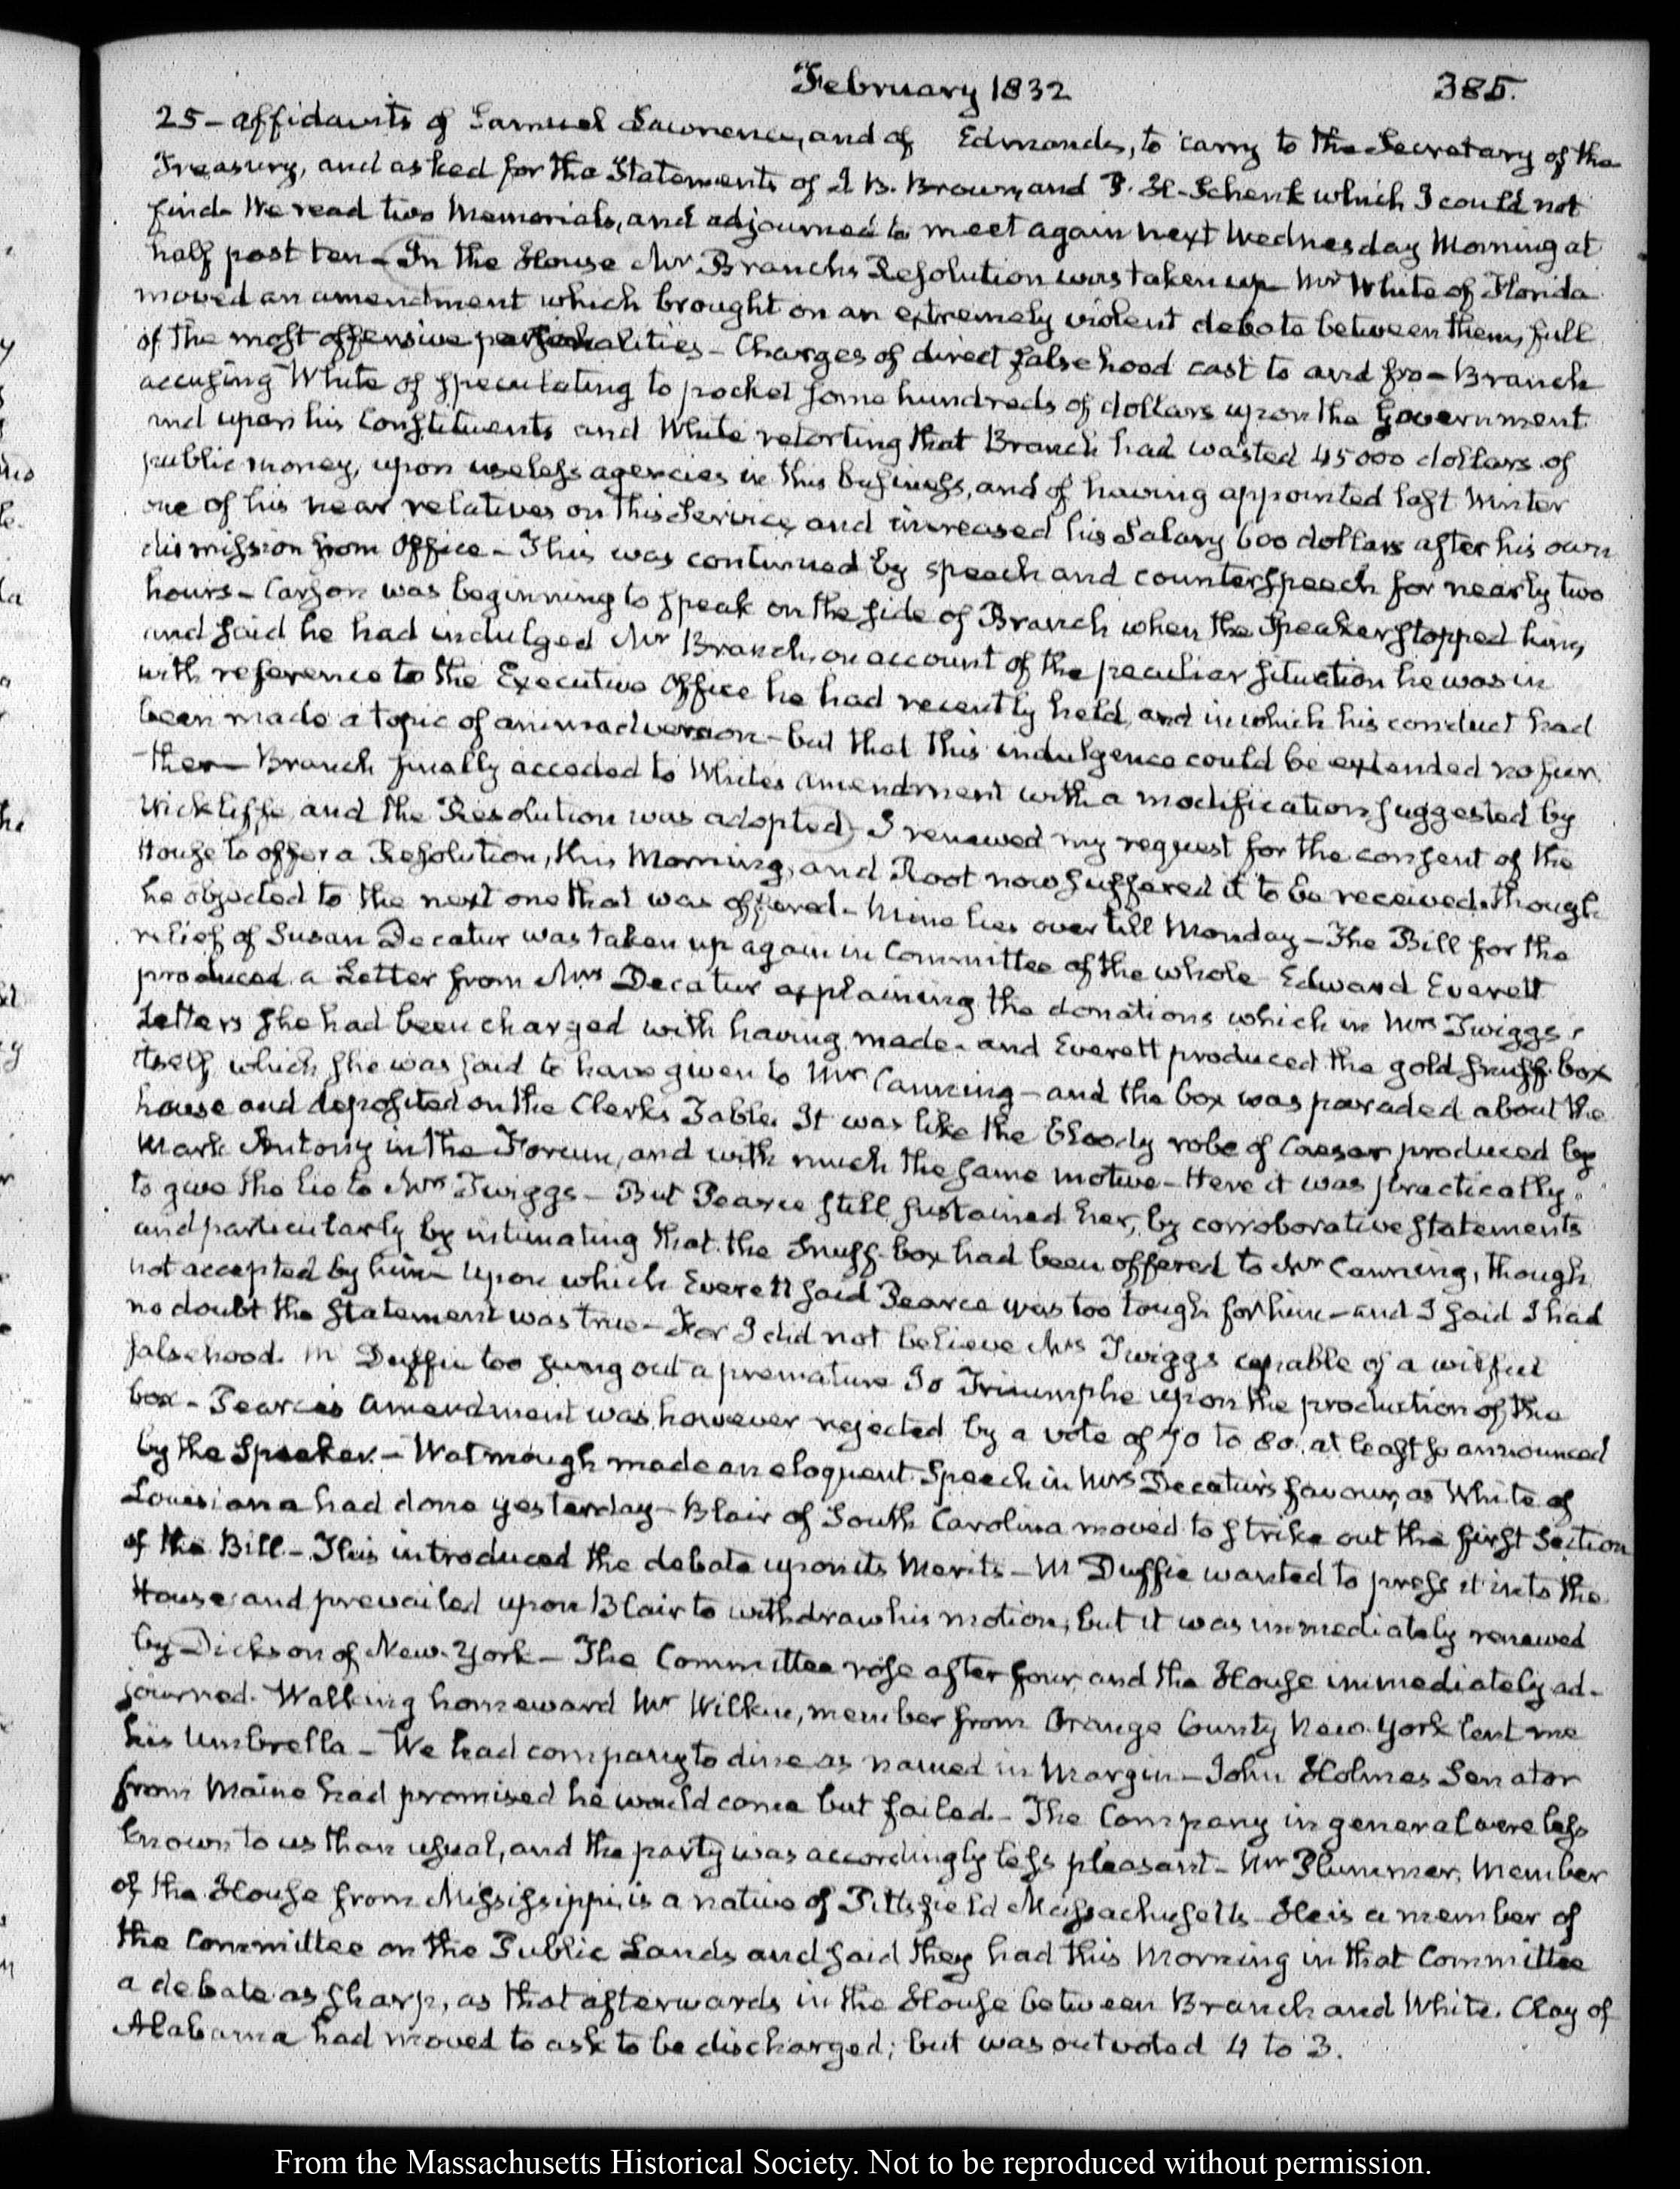 February 1832
385.
25 – affidavits of Samuel Lawrence, and of Edmands, to carry to the Secretary of the
Treasury, and asked for the Statements of J. B. Brown, and P. H. Schenk which I could not
find. We read two Memorials, and adjourned to meet again next Wednesday Morning at
half past ten – In the House Mr Branch's Resolution was taken up Mr White of Florida
moved an amendment which brought on an extremely violent debate between them, full
of the most offensive personalities – Charges of direct falsehood cast to and fro – Branch
accusing White of speculating to pocket some hundreds of dollars upon the Government
and upon his Constituents and White retorting that Branch had wasted 45000 dollars of
public money, upon useless agencies in this business, and of having appointed last Winter
one of his near relatives on this Service, and increased his Salary 600 dollars after his own
dismission from Office – This was continued by speech and counterspeech for nearly two
hours – Carson was beginning to speak on the side of Branch when the Speaker stopped him,
and said he had indulged Mr Branch, on account of the peculiar situation he was in
with reference to the Executive Office he had recently held, and in which his conduct had
been made a topic of animadversion – but that this indulgence could be extended no fur
ther – Branch finally acceded to White's amendment with a modification suggested by
Wickliffe, and the Resolution was adopted) I renewed my request for the consent of the
House to offer a Resolution, this Morning, and Root now suffered it to be received though
he objected to the next one that was offered – Mine lies over till Monday – The Bill for the
relief of Susan Decatur was taken up again in Committee of the whole Edward Everett
produced a Letter from Mrs Decatur explaining the donations which in Mrs Twiggs's
Letters she had been charged with having made – and Everett produced the gold snuff-box
itself which she was said to have given to Mr Canning – and the box was paraded about the
house and deposited on the Clerks Table. It was like the bloody robe of Caesar produced by
Mark Antony in the Forum, and with much the same motive – Here it was practically
to give the lie to Mrs Twiggs – But Pearce still sustained her, by corroborative statements
and particularly by intimating that the Snuff-box had been offered to Mr Canning, though
not accepted by him – Upon which Everett said Pearce was too tough for him – and I said I had
no doubt the statement was true – For I did not believe Mrs Twiggs capable of a wilful
falsehood. McDuffie too sung out a premature Io Triumphe upon the production of the
box – Pearce's amendment was however rejected by a vote of 70 to 80. at least so announced
by the Speaker. – Watmough made an eloquent Speech in Mrs Decatur's favour, as White of
Louisiana had done yesterday – Blair of South Carolina moved to strike out the first Section
of the Bill – This introduced the debate upon its Merits – McDuffie wanted to press it into the
House and prevailed upon Blair to withdraw his motion, but it was immediately renewed
by Dickson of New-York – The Committee rose after four, and the House immediately ad-
journed. Walking homeward Mr Wilkin, member from Orange County New-York lent me
his Umbrella – We had company to dine as named in Margin – John Holmes Senator
from Maine had promised he would come but failed. – The Company in general were less
known to us than usual, and the party was accordingly less pleasant – Mr Plummer, Member
of the House from Mississippi, is a native of Pittsfield Massachusetts He is a member of
the Committee on the Public Lands and said they had this Morning in that Committee
a debate as sharp, as that afterwards in the House between Branch and White. Clay of
Alabama had moved to ask to be discharged; but was outvoted 4 to 3.
From the Massachusetts Historical Society. Not to be reproduced without permission.